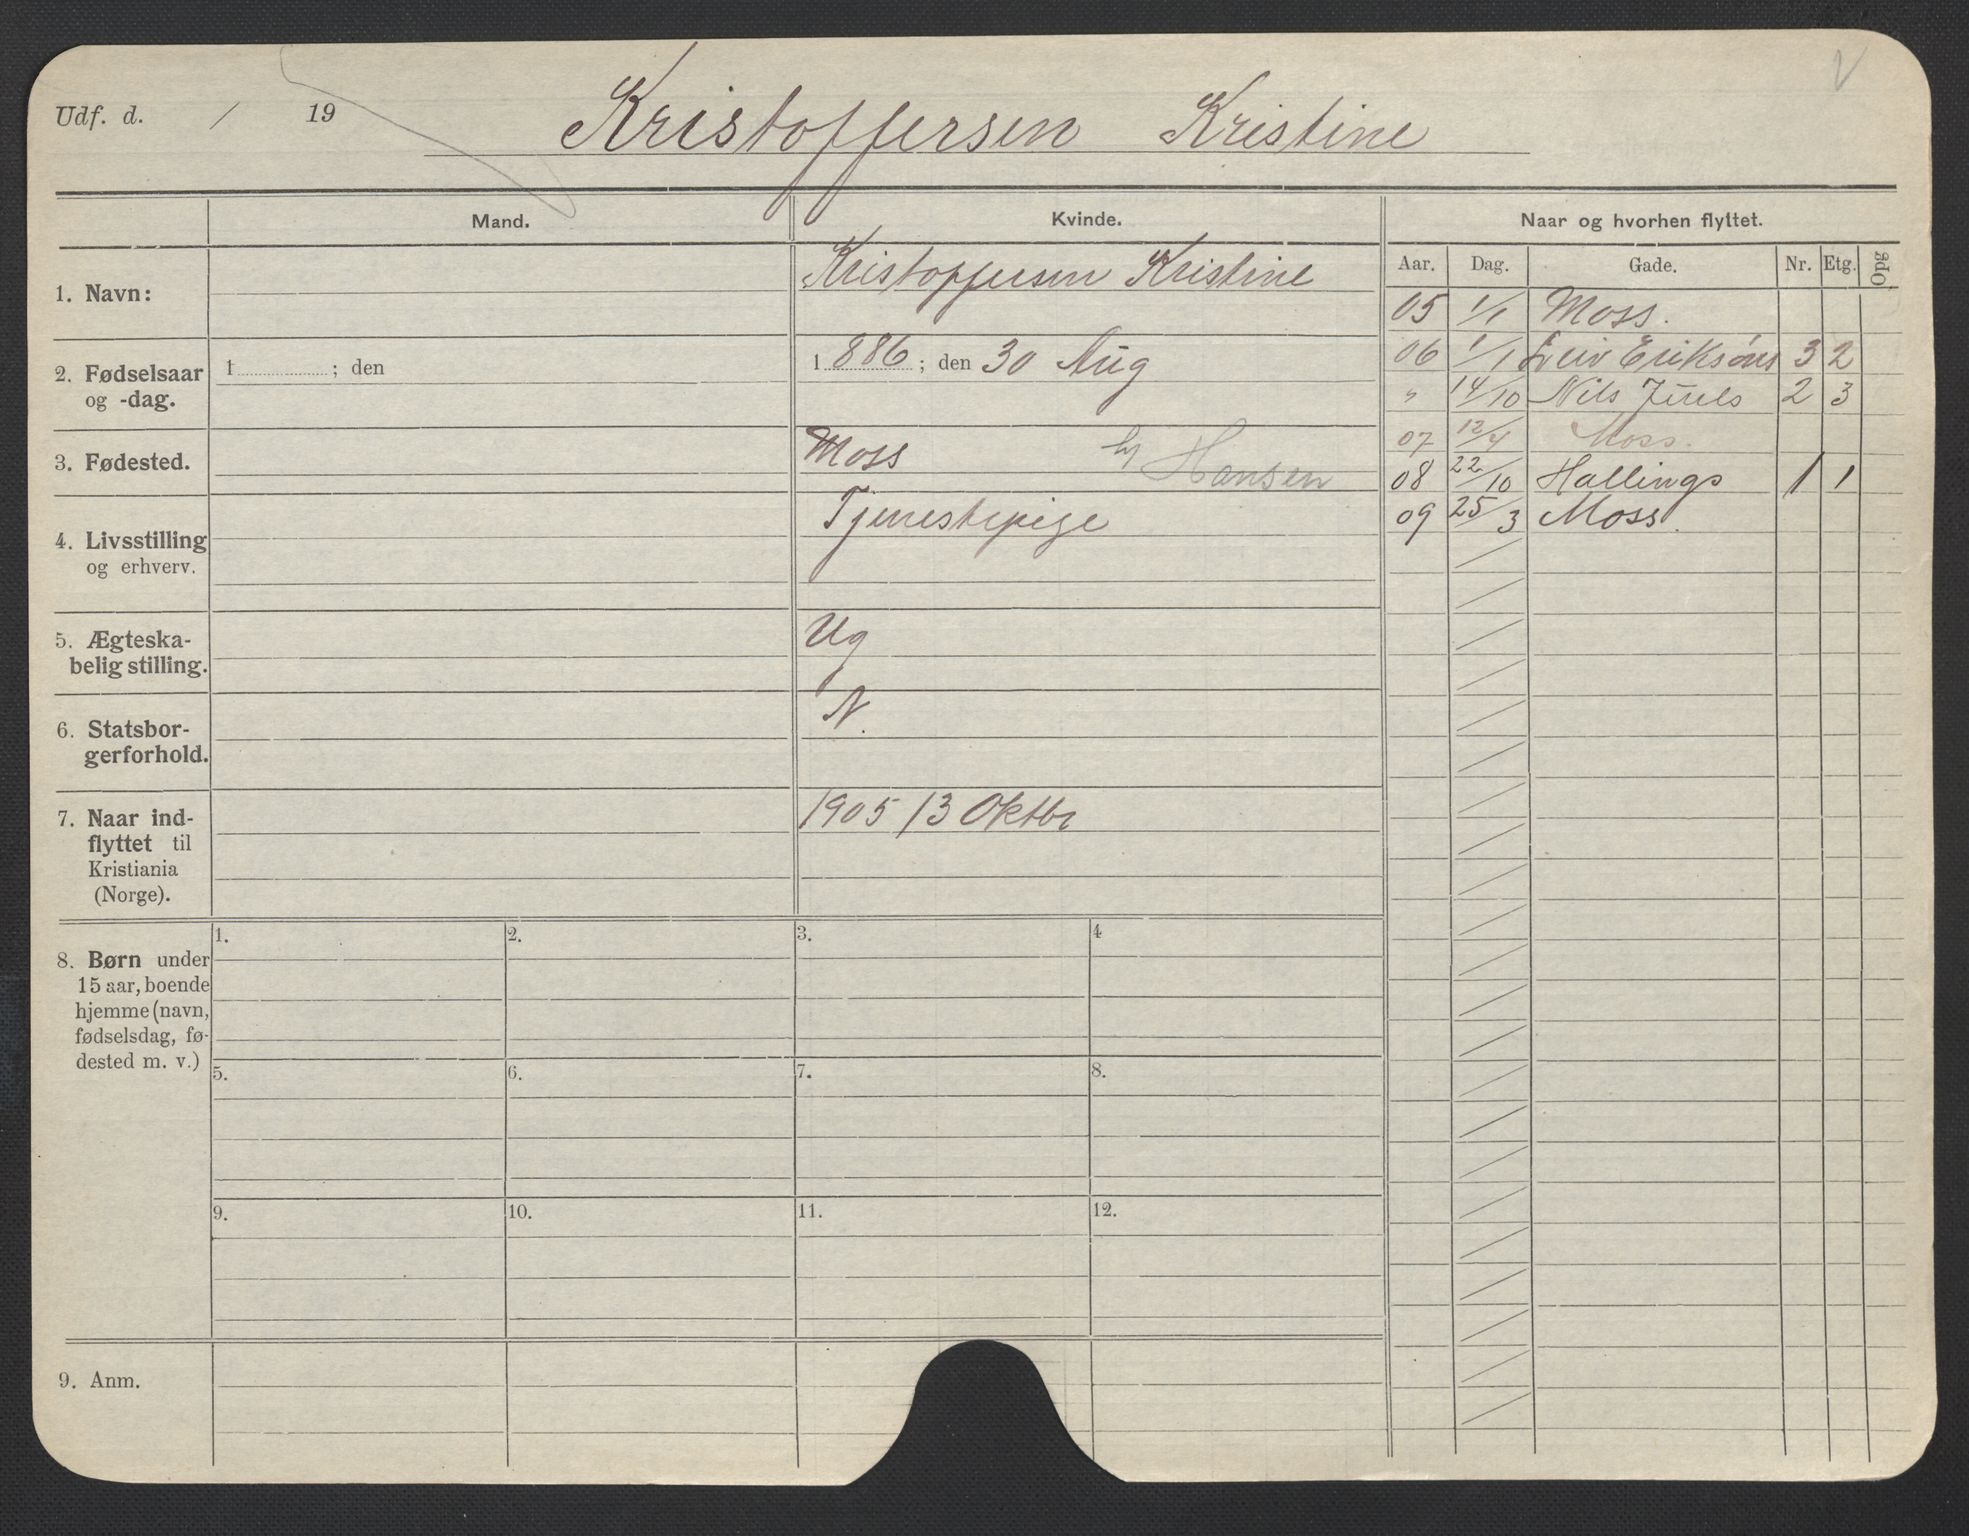 Udf. d. / 19
Kristoffersen Kristine
Mand.
Kvinde.
Naar og hvorhen flyttet.
Aar. Dag. Gade. Nr. Etg. Opg
1. Navn:
Kristoffersen Kristine
2. Fødselsaar
og -dag.
1 ; den
1886 ; den 30 Aug
3. Fødested.
Moss
Hansen
4. Livsstilling
og erhverv.
Tjenestepige
5. Ægteska-
belig stilling.
Ug
6. Statsbor-
gerforhold.
N.
7. Naar ind-
flyttet til
Kristiania
(Norge).
1905 13 Oktbr
05 1/1 Moss.
06 1/1 Leiv Eriksøns 3 2
" 14/10 Nils Juels 2 3
07 12/4 Moss.
08 22/10 Hallings 1 1
09 25/3 Moss.
8. Børn under
15 aar, boende
hjemme (navn,
fødselsdag, fø-
dested m. v.)
1. 2. 3. 4
5. 6. 7. 8.
9. 10. 11. 12.
9. Anm.